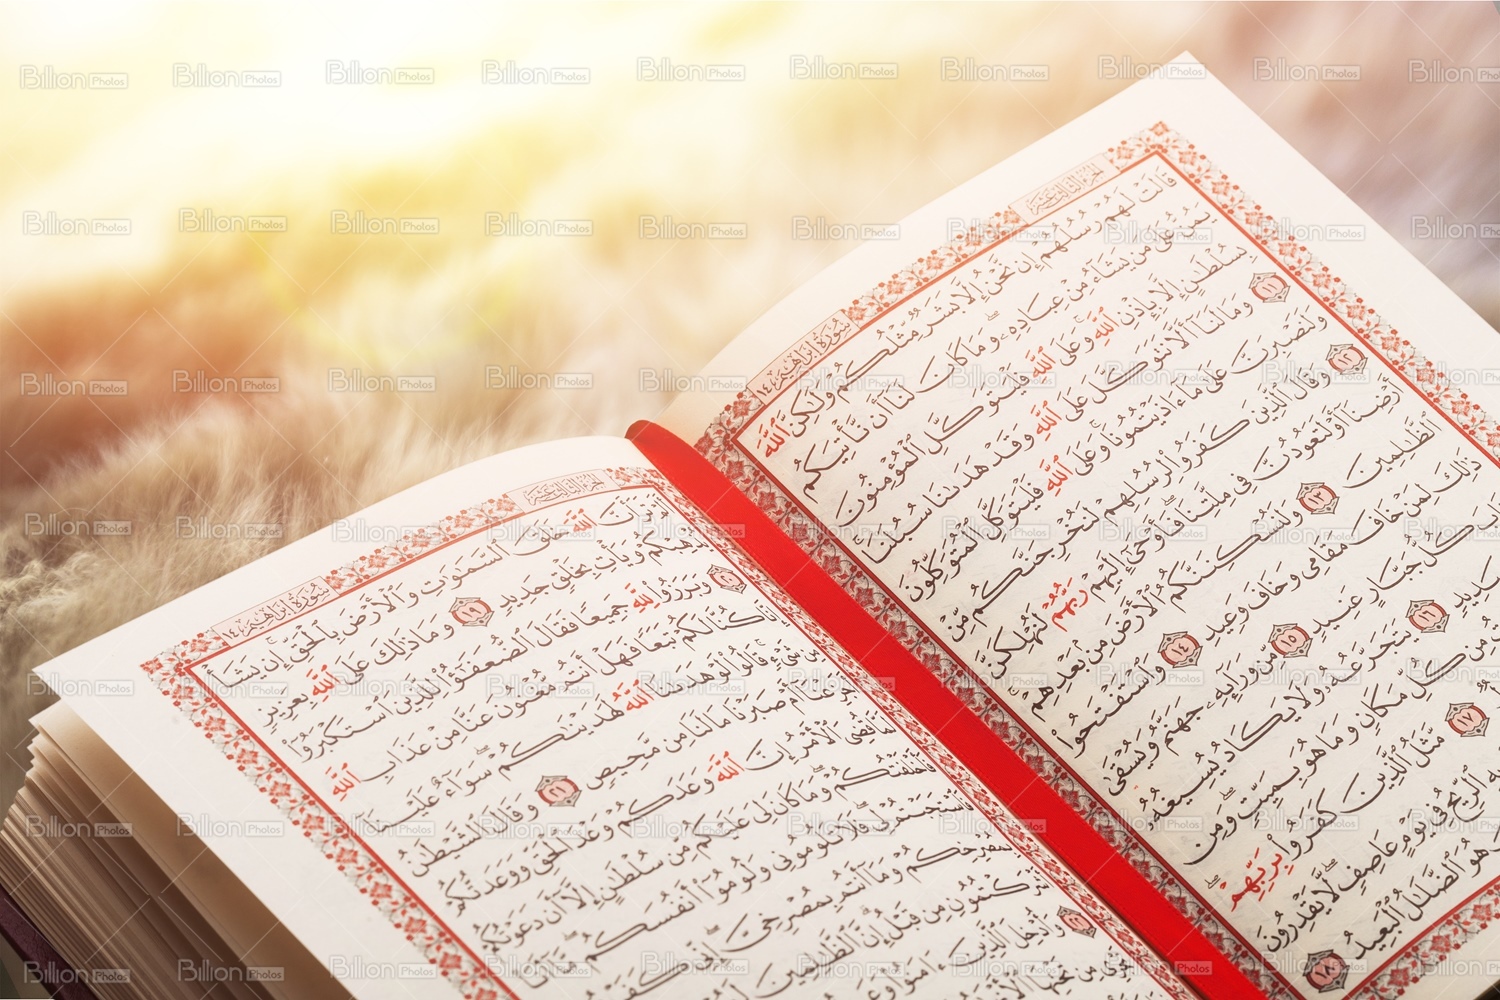 الجزء الثالث عشر
سورة ابراهيم ١٤
قَالَتْ لَهُمْ رُسُلُهُمْ إِن نَّحْنُ إِلَّا بَشَرٌ مِّثْلُكُمْ وَلَٰكِنَّ ٱللَّهَ
يَمُنُّ عَلَىٰ مَن يَشَآءُ مِنْ عِبَادِهِۦ وَمَا كَانَ لَنَآ أَن نَّأْتِيَكُم
بِسُلْطَٰنٍ إِلَّا بِإِذْنِ ٱللَّهِ وَعَلَى ٱللَّهِ فَلْيَتَوَكَّلِ ٱلْمُؤْمِنُونَ
١١ وَمَا لَنَآ أَلَّا نَتَوَكَّلَ عَلَى ٱللَّهِ وَقَدْ هَدَىٰنَا سُبُلَنَا
وَلَنَصْبِرَنَّ عَلَىٰ مَآ ءَاذَيْتُمُونَا وَعَلَى ٱللَّهِ فَلْيَتَوَكَّلِ ٱلْمُتَوَكِّلُونَ
١٢ وَقَالَ ٱلَّذِينَ كَفَرُوا۟ لِرُسُلِهِمْ لَنُخْرِجَنَّكُم مِّنْ
أَرْضِنَآ أَوْ لَتَعُودُنَّ فِى مِلَّتِنَا فَأَوْحَىٰٓ إِلَيْهِمْ رَبُّهُمْ لَنُهْلِكَنَّ
ٱلظَّٰلِمِينَ ١٣ وَلَنُسْكِنَنَّكُمُ ٱلْأَرْضَ مِنۢ بَعْدِهِمْ
ذَٰلِكَ لِمَنْ خَافَ مَقَامِى وَخَافَ وَعِيدِ ١٤ وَٱسْتَفْتَحُوا۟
كُلُّ جَبَّارٍ عَنِيدٍ ١٥ مِّن وَرَآئِهِۦ جَهَنَّمُ وَيُسْقَىٰ
صَدِيدٍ ١٦ يَتَجَرَّعُهُۥ وَلَا يَكَادُ يُسِيغُهُۥ
مِن كُلِّ مَكَانٍ وَمَا هُوَ بِمَيِّتٍ وَمِن
١٧ مَّثَلُ ٱلَّذِينَ كَفَرُوا۟ بِرَبِّهِمْ
بِهِ ٱلرِّيحُ فِى يَوْمٍ عَاصِفٍ لَّا يَقْدِرُونَ
هُوَ ٱلضَّلَٰلُ ٱلْبَعِيدُ ١٨
الجزء الثالث عشر
سورة ابراهيم ١٤
أَنَّ ٱللَّهَ خَلَقَ ٱلسَّمَٰوَٰتِ وَٱلْأَرْضَ بِٱلْحَقِّ إِن يَشَأْ
يُذْهِبْكُمْ وَيَأْتِ بِخَلْقٍ جَدِيدٍ ١٩ وَمَا ذَٰلِكَ عَلَى ٱللَّهِ بِعَزِيزٍ
٢٠ وَبَرَزُوا۟ لِلَّهِ جَمِيعًا فَقَالَ ٱلضُّعَفَٰٓؤُا۟ لِلَّذِينَ ٱسْتَكْبَرُوٓا۟
إِنَّا كُنَّا لَكُمْ تَبَعًا فَهَلْ أَنتُم مُّغْنُونَ عَنَّا مِنْ عَذَابِ ٱللَّهِ
مِن شَىْءٍ قَالُوا۟ لَوْ هَدَىٰنَا ٱللَّهُ لَهَدَيْنَٰكُمْ سَوَآءٌ عَلَيْنَآ
أَجَزِعْنَآ أَمْ صَبَرْنَا مَا لَنَا مِن مَّحِيصٍ ٢١ وَقَالَ ٱلشَّيْطَٰنُ
لَمَّا قُضِىَ ٱلْأَمْرُ إِنَّ ٱللَّهَ وَعَدَكُمْ وَعْدَ ٱلْحَقِّ وَوَعَدتُّكُمْ
فَأَخْلَفْتُكُمْ وَمَا كَانَ لِىَ عَلَيْكُم مِّن سُلْطَٰنٍ إِلَّآ أَن دَعَوْتُكُمْ
فَٱسْتَجَبْتُمْ لِى فَلَا تَلُومُونِى وَلُومُوٓا۟ أَنفُسَكُم مَّآ أَنَا۠
بِمُصْرِخِكُمْ وَمَآ أَنتُم بِمُصْرِخِىَّ إِنِّى كَفَرْتُ
أَشْرَكْتُمُونِ مِن قَبْلُ إِنَّ ٱلظَّٰلِمِينَ
٢٢ وَأُدْخِلَ ٱلَّذِينَ ءَامَنُوا۟
تَجْرِى مِن تَحْتِهَا